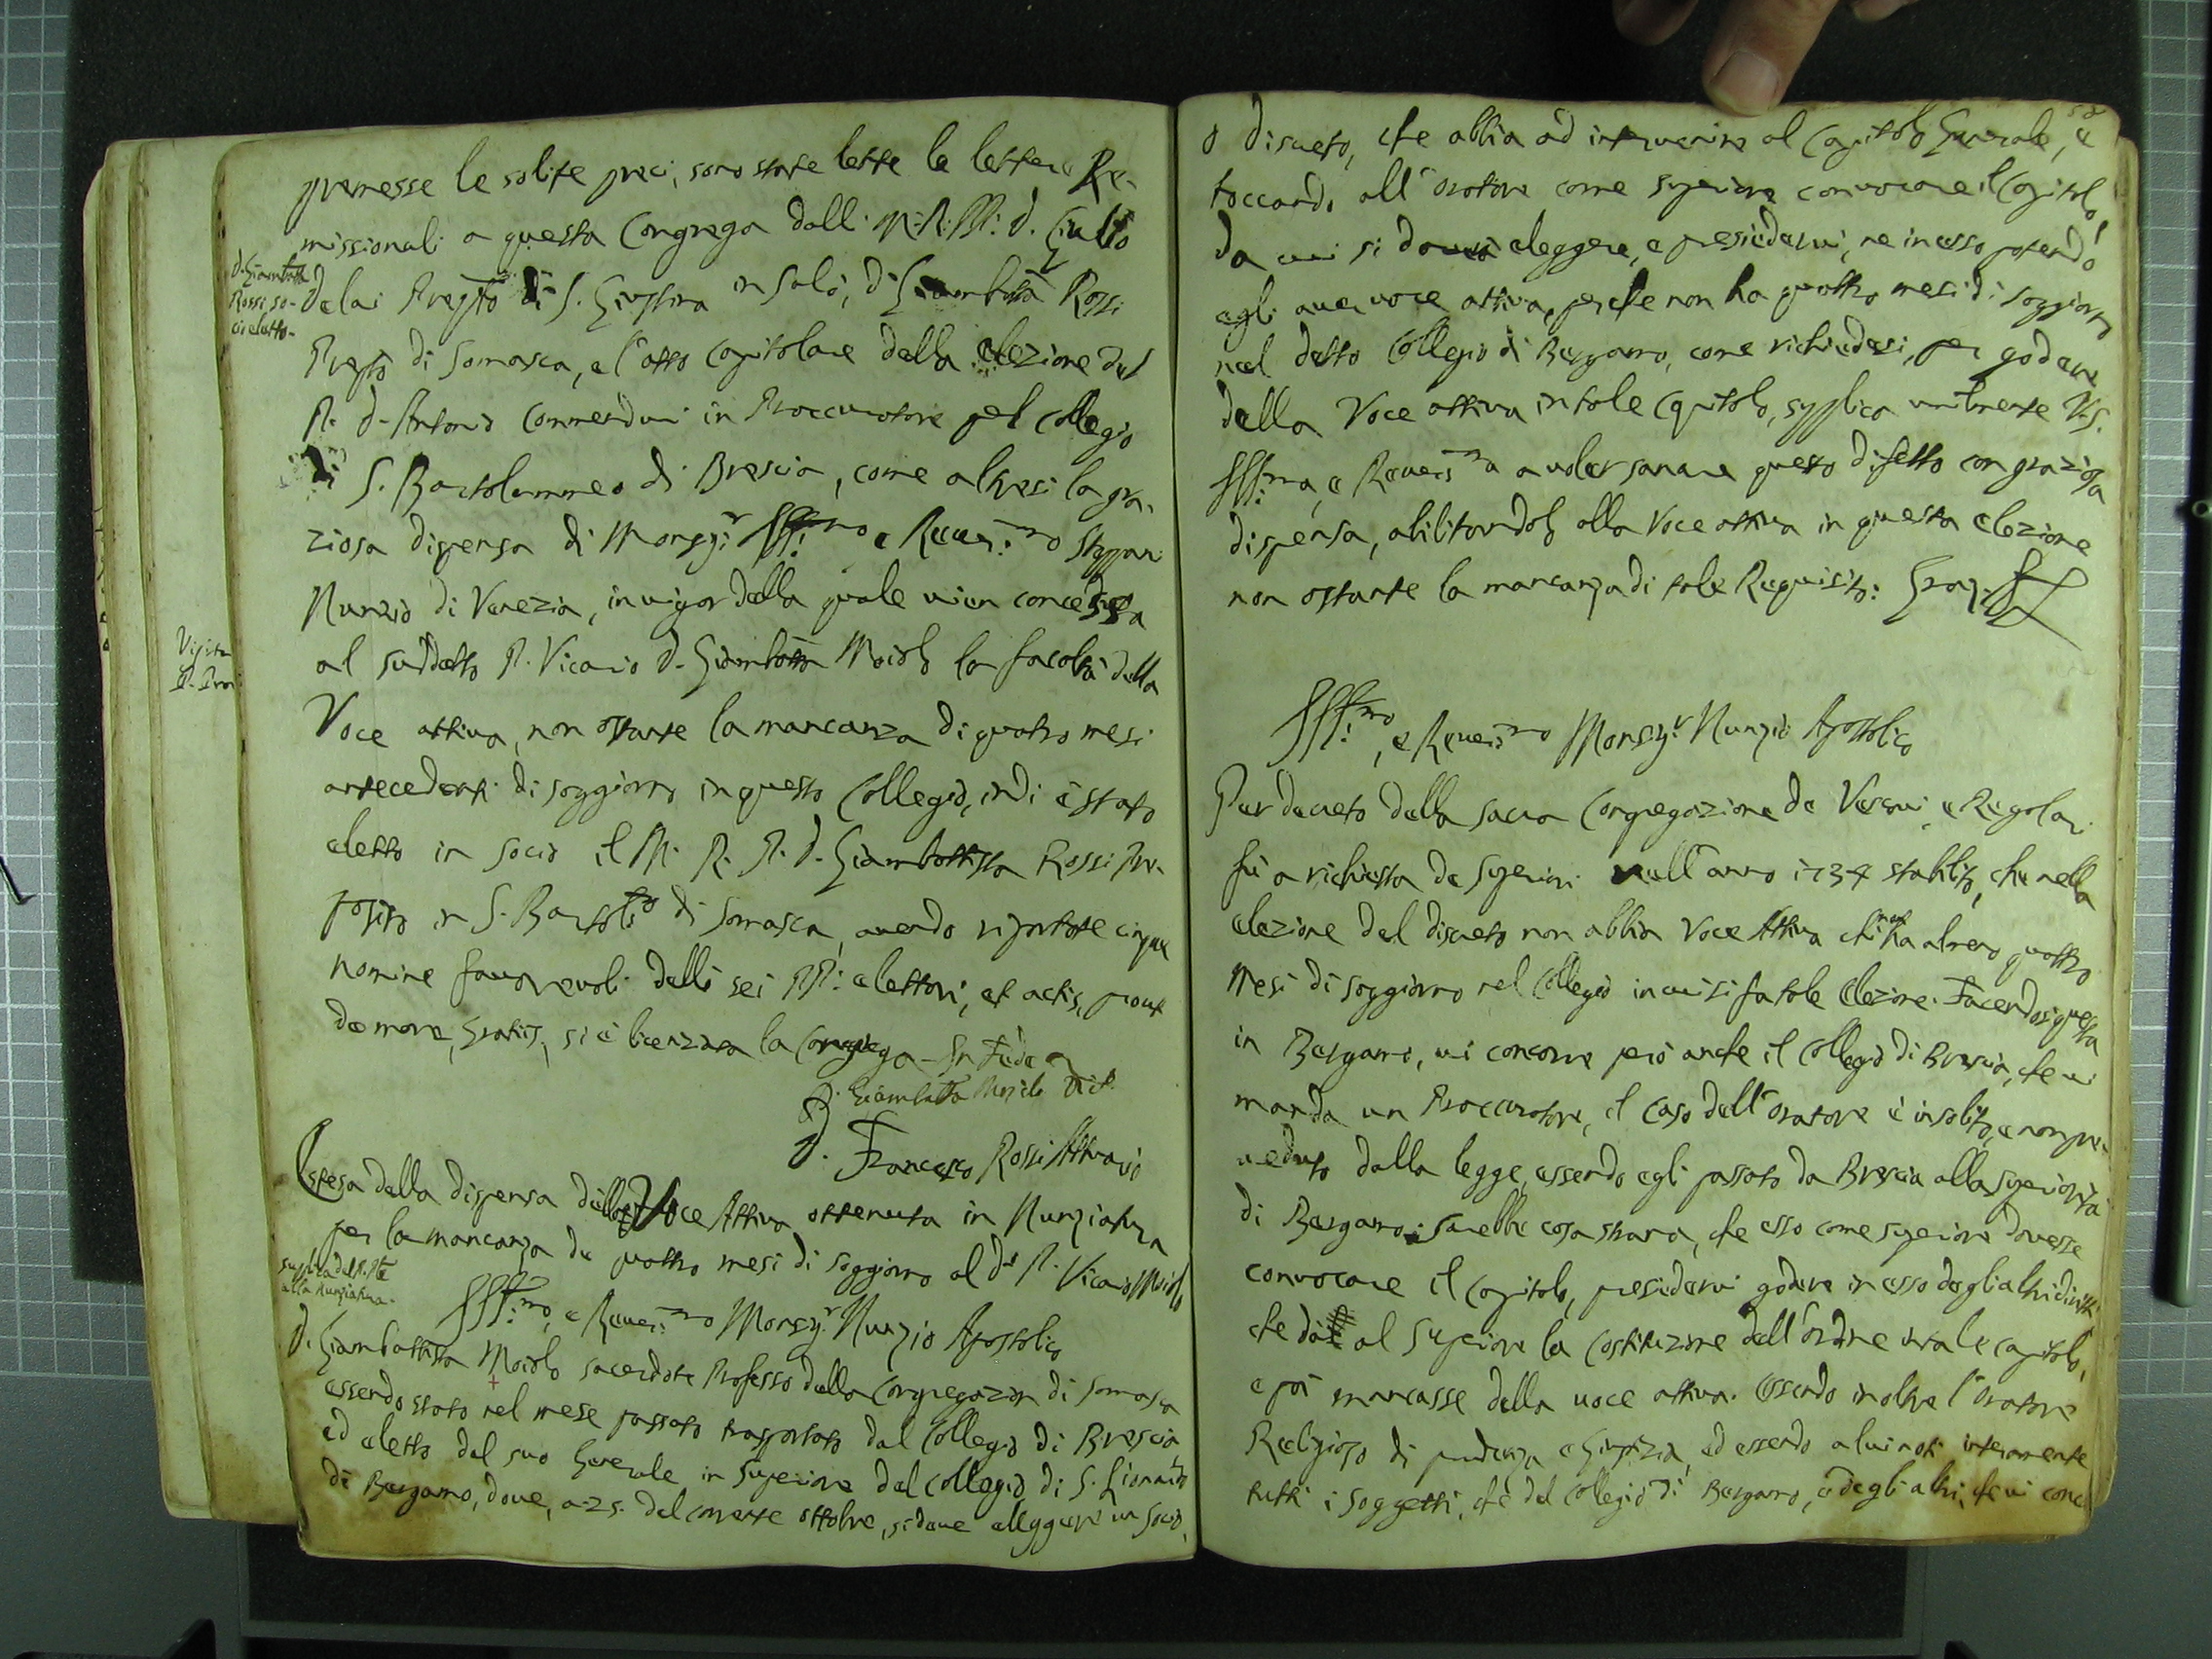 premesse le solite preci, sono state lette le lettere Re-
missionali a questa Congrega dalli M. R. PP. d. Giulio
d. Giambatta
Rossi so-
cio eletto-
delai Prepto di S. Giustina in Salò, d. Giambatta Rossi
Prepto di Somasca, e l'atto capitolare della elezione del
P. d. Antonio Commenduni in Proccuratore pel Collegio
di S. Bartolommeo di Brescia, come altresì la gra-
ziosa dispensa di Monsigr Illmo e Reuermo
Nunzio di Venezia, in uigor della quale uien concessa
al suddetto P. Vicario d. Giambatta Maiolo la facoltà della
Voce attiua, non ostante la mancanza di quatro mesi
antecedenti di soggiorno in questo Collegio, indi è stato
eletto in socio il M. R. P. d. Giambattista Rossi Pre-
posito in S. Bartolo di Somasca, auendo riportate cinque
nomine fauoreuoli dalli sei PP. elettori, et actis, prout
de more, gratiis, si è licenziata la Congrega. In Fede
D. Giambatta Maiolo Vic.
D. Francesco Rossi Attuario
Spesa della dispensa della Voce Attiua ottenuta in Nunziatura
per la mancanza de quattro mesi di soggiorno al do P. Vicario Maiolo
Supplica del P. 
alla Nunziatura.
Illmo, e Reuermo Monsigr Nunzio Apostolico
D. Giambattista Maiolo sacerdote Professo della Congregazion di Somasca
essendo stato nel mese passato trasportato dal Collegio di Brescia
ed eletto dal suo Generale in Superiore del Collegio di S. Lionardo
di Bergamo, doue, a 25. del corrente ottobre, si deue elleggere un socio,
Visita
P. Prov:
o discreto, che abbia ad interuenire al Capitolo Generale, e
toccando all'oratore come superiore conuocare il Capitolo
da cui si deue eleggere, e presiederui, ne in esso potendo
egli auer uoce attiua, perche non ha quattro mesi di soggiorno
nel detto Collegio di Bergamo, come richiedesi, per godere
della Voce attiua in tale Capitolo, supplica umilmente V. S.
Illma, e Reuerma a uoler sanare questo difetto con graziosa
dispensa, abilitandolo alla Voce attiua in questa elezione
non ostante la mancanza di tale Requisito: Graz.
Illmo, e Reuermo Monsigr Nunzio Apostolico
Per decreto della sacra Congregazione de Vescoui, e Regolari
fù a richiesta de Superiori nell'anno 1734 stabilito, che nella
elezione del discreto non abbia Voce Attiua chi non ha almeno quattro
Mesi di soggiorno nel Collegio in cui si fa tale Elezione. Facendosi questa
in Bergamo, ui concorre però anche il Collegio di Brescia, che ui
manda un Proccuratore, il caso dell'oratore è insolito, e non pre-
ueduto dalla legge, essendo egli passato da Brescia alla superiorità
di Bergamo; Sarebbe cosa strana, che esso come superiore douesse
conuocare il Capitolo, presiederui godere in esso degli altri diritti
che dà al Superiore la Costituzione dell'ordine in tale capitolo,
e poi mancasse della uoce attiua. Essendo inoltre l'oratore
Religioso di prudenza e Giustizia, ed essendo a lui noti interamente
tutti i soggetti, che del Collegio di Bergamo, e degli altri, che ui conc